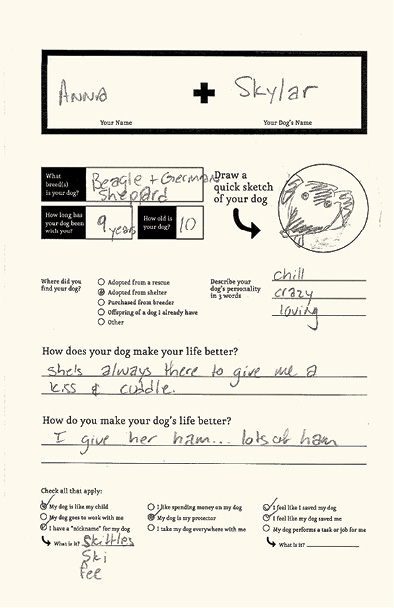 Anna + Skylar
Your Name Your Dog's Name
What breed(s) is your dog? Beagle + German
Sheppard
How long has your dog been with you? 9 years How old is your dog? 10
Draw a
quick sketch
of your dog
Where did you
find your dog?
Adopted from a rescue
Adopted from shelter
Purchased from breeder
Offspring of a dog I already have
Other
Describe your
dog's personality
in 3 words
chill
crazy
loving
How does your dog make your life better?
she's always there to give me a
kiss & cuddle.
How do you make your dog's life better?
I give her ham... lots of ham
Check all that apply:
My dog is like my child
My dog goes to work with me
I have a "nickname" for my dog
What is it? Skittles
Ski
Fee
I like spending money on my dog
My dog is my protector
I take my dog everywhere with me
I feel like I saved my dog
I feel like my dog saved me
My dog performs a task or job for me
What is it?